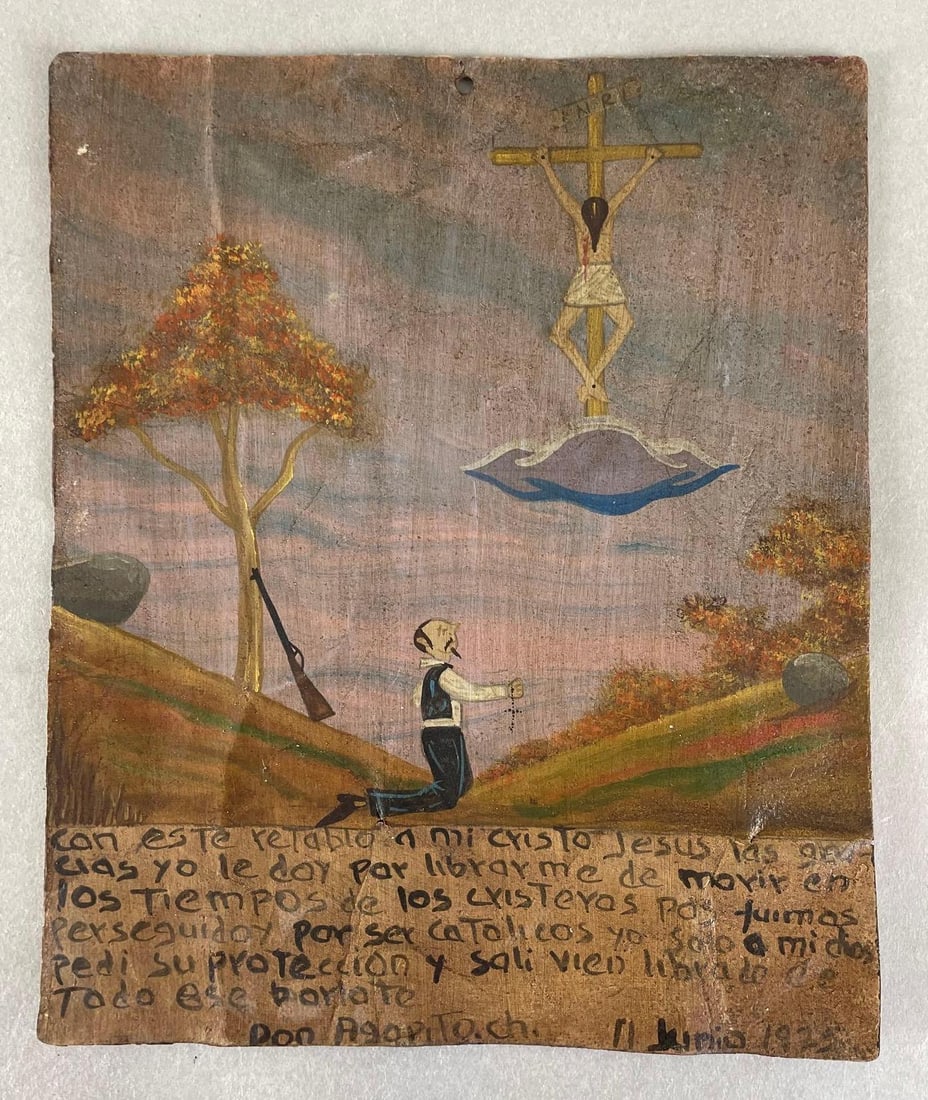 INRI
con este retablo a mi cristo Jesus las gra-
cias yo le doy por librarme de morir en
los Tiempos de los cristeros pos fuimos
perseguidoy por ser catolicos yo solo a mi dios
pedi su protección y sali vien librado de
Todo ese borlote
Don Agapito.ch. 11 Junio